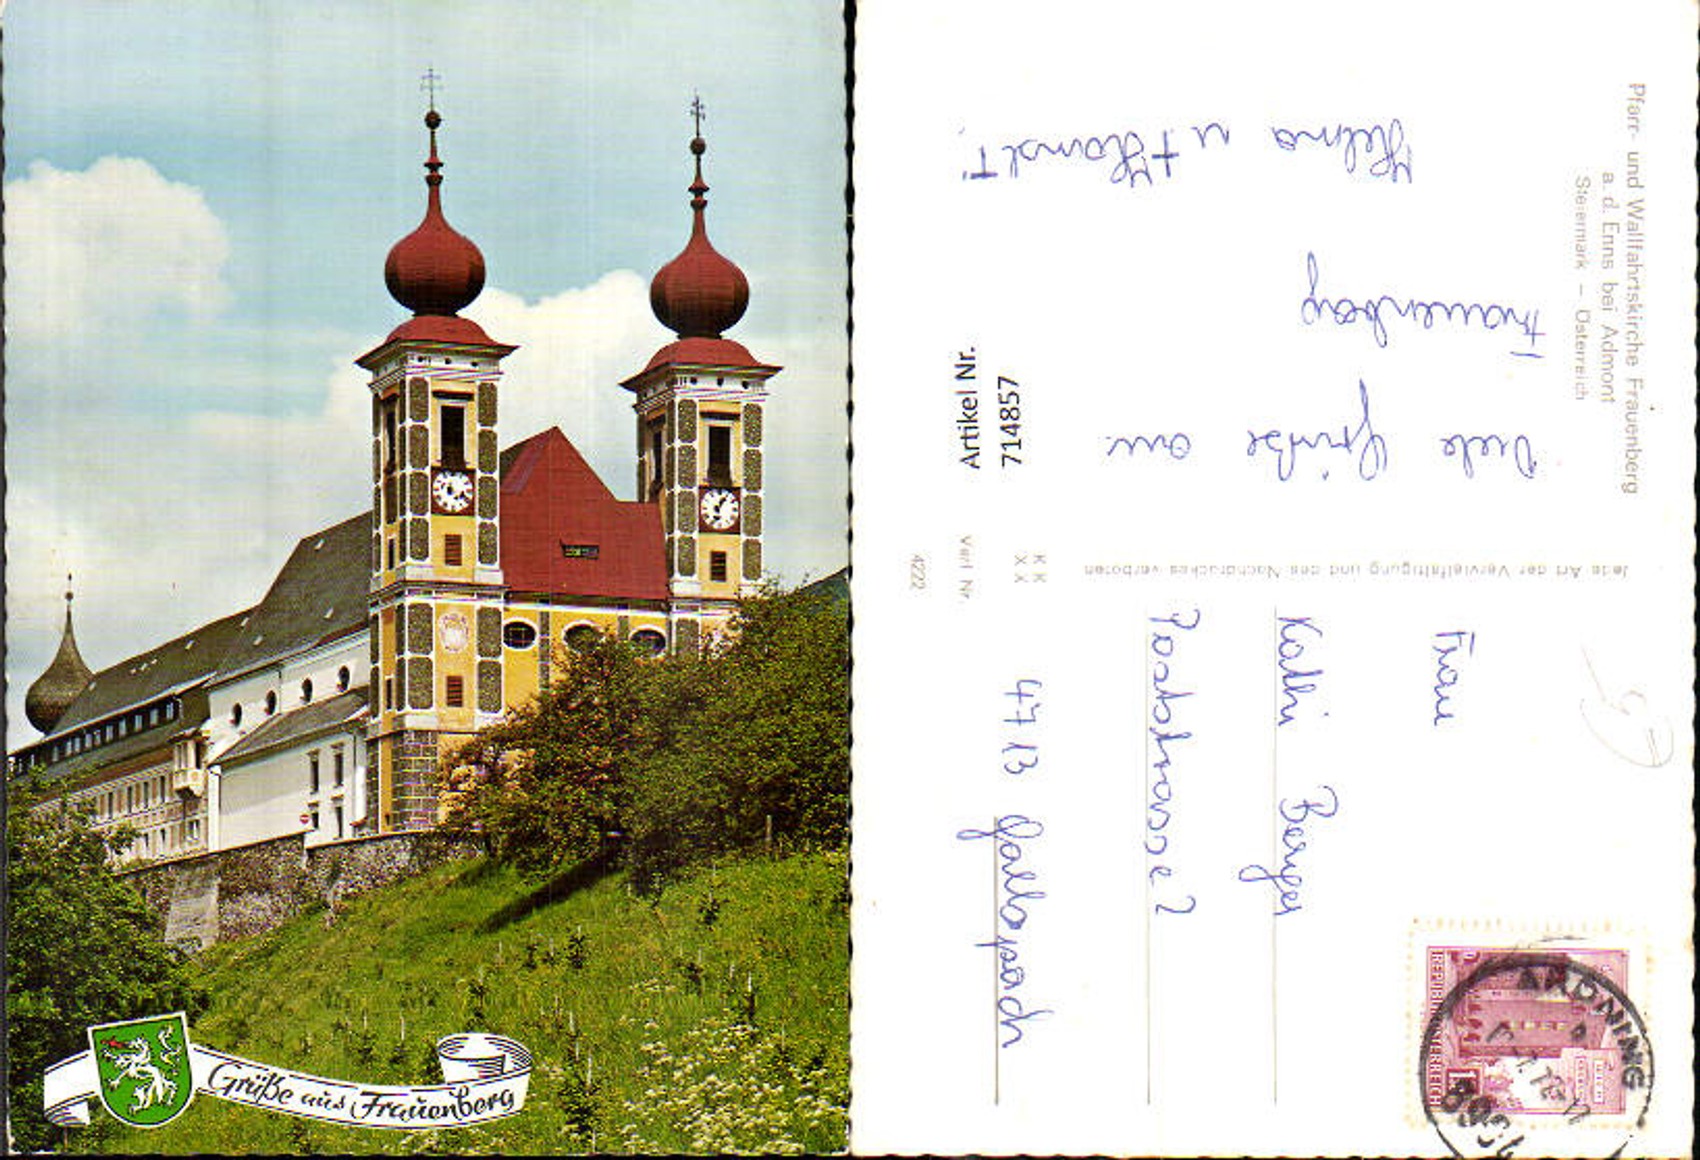 Grüße aus Frauenberg
Pfarr- und Wallfahrtskirche Frauenberg
a. d. Enns bei Admont
Steiermark – Österreich
Viele Grüße aus
Frauenberg
Helma u
Artikel Nr.
714857
Jede Art der Vervielfältigung und des Nachdruckes verboten
K K
X X
Verl. Nr.
4222
Frau
Kathi Berger
Poststrasse 2
4713 Gallspach
REPUBLIK ÖSTERREICH
ARDNING
8904